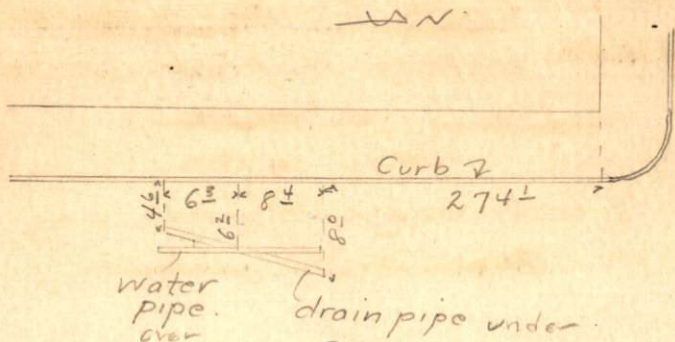 N.
Curb
4 6 6 3 8 4 274 1
6 2 8 0
water
pipe.
over
drain pipe under.